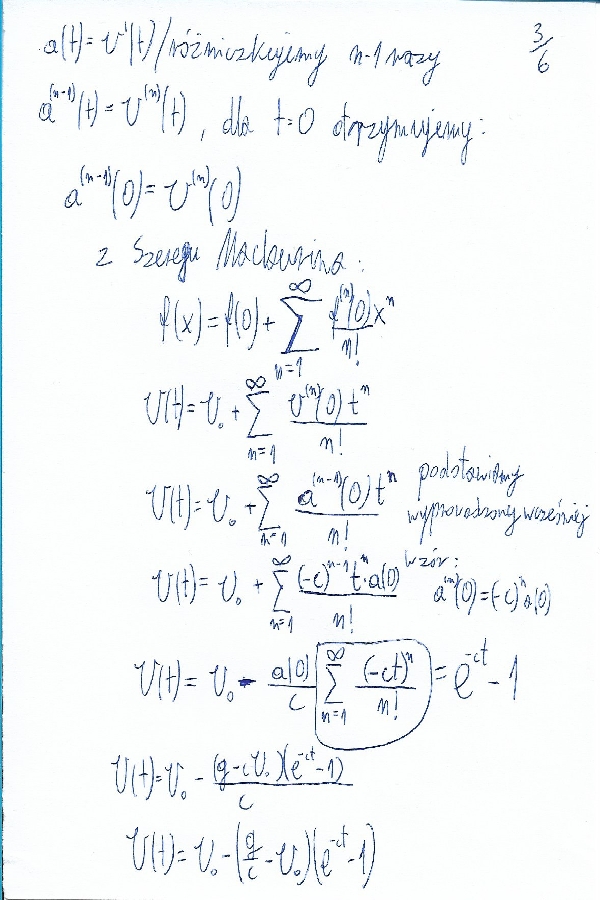 a(t) = v'(t) / różniczkujemy n-1 razy
3/6
a^(n-1)(t) = v^(n)(t), dla t=0 otrzymujemy:
a^(n-1)(0) = v^(n)(0)
z Szeregu Maclaurina:
f(x) = f(0) + ∑_{n=1}^{∞} f^(n)(0)x^n / n!
v(t) = v₀ + ∑_{n=1}^{∞} v^(n)(0) t^n / n!
v(t) = v₀ + ∑_{n=1}^{∞} a^(n-1)(0) t^n / n!
podstawiamy
wyprowadzony wcześniej
wzór:
v(t) = v₀ + ∑_{n=1}^{∞} (-c)^{n-1} t^n · a(0) / n!
a^(n)(0) = (-c)^n a(0)
v(t) = v₀ - a(0)/c ∑_{n=1}^{∞} (-ct)^n / n! = e^{-ct} - 1
v(t) = v₀ - (g-cv₀)(e^{-ct}-1) / c
v(t) = v₀ - (g/c - v₀)(e^{-ct} - 1)